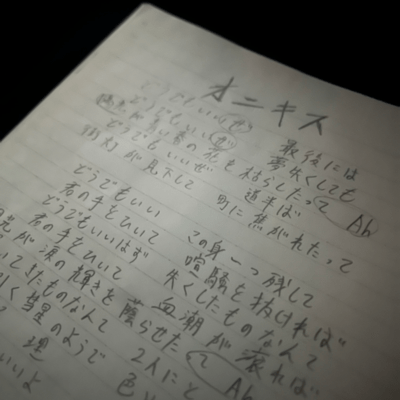 オニキス
どうでもいい(ぜ)
どうでもいいぜ 最後には
青い春の花も枯らしたって 夢失くしても
どうでもいいぜ 道半ば Ab
街灯が見下して 町に焦がれたって
どうでもいい この身一つ残して
君の手をひいて 喧騒を抜ければ
どうでもいいはず 失くしたものなんて
君の手をひいて 血潮が滾れば
が涙の輝きを蔭らせたって Ab
いてきたものなんて 2人にと
く彗星のようで 色
理
いいよ